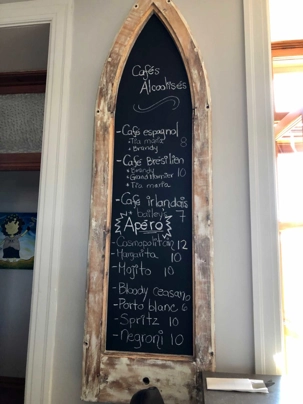 Cafés
Alcoolisés
- Café espagnol
• Tia maria 8
• Brandy
- Café Brésilien
• Brandy
• Grand Marnier 10
• Tia maria
- Café irlandais
• baileys 7
Apéro
- Cosmopolitan 12
- Margarita 10
- Mojito 10
- Bloody Ceasar
- Porto blanc 6
- Spritz 10
- Negroni 10